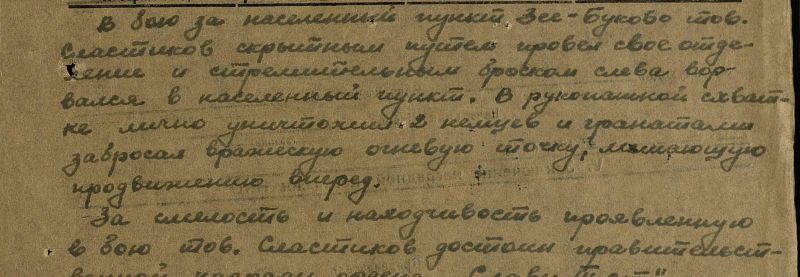 В бою за населенный пункт Зее-Буково тов.
Сластиков скрытным путем провел свое отде-
ление и стремительным броском слева вор-
вался в населенный пункт. В рукопашной схват-
ке лично уничтожил 2 немцев и гранатами
забросал вражескую огневую точку, мешающую
продвижению вперед.
За смелость и находчивость проявленную
в бою тов. Сластиков достоин правительст-
венной награды ордена "Слава